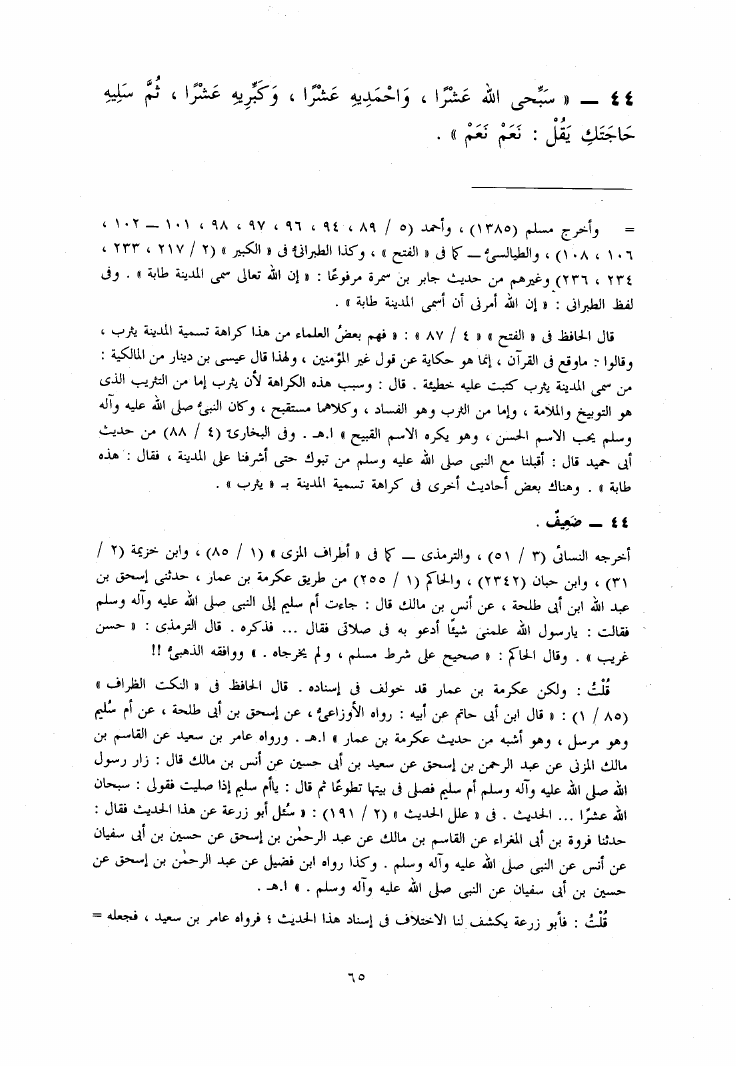 ٤٤ — « سَبِّحى الله عَشْرًا ، وَاحْمَدِيهِ عَشْرًا ، وَكَبِّرِيهِ عَشْرًا ، ثُمَّ سَلِيهِ
حَاجَتَكِ يَقُلْ : نَعَمْ نَعَمْ » .
= وأخرج مسلم (١٣٨٥) ، وأحمد (٥ / ٨٩ ، ٩٤ ، ٩٦ ، ٩٧ ، ٩٨ ، ١٠١ — ١٠٢ ،
١٠٦ ، ١٠٨) ، والطيالسىُّ — كما فى « الفتح » ، وكذا الطبرانىُّ فى « الكبير » (٢ / ٢١٧ ، ٢٣٣ ،
٢٣٤ ، ٢٣٦) وغيرهم من حديث جابر بن سمرة مرفوعًا : « إن الله تعالى سمى المدينة طابة » . وفى
لفظ الطبرانى : « إن الله أمرنى أن أسمى المدينة طابة » .
قال الحافظ فى « الفتح » « ٤ / ٨٧ » : « فهم بعضُ العلماء من هذا كراهة تسمية المدينة يثرب ،
وقالوا : ماوقع فى القرآن ، إنما هو حكاية عن قول غير المؤمنين ، ولهذا قال عيسى بن دينار من المالكية :
من سمى المدينة يثرب كتبت عليه خطيئة . قال : وسبب هذه الكراهة لأن يثرب إما من التثريب الذى
هو التوبيخ والملامة ، وإما من الثرب وهو الفساد ، وكلاهما مستقبح ، وكان النبىُّ صلى الله عليه وآله
وسلم يحب الاسم الحسن ، وهو يكره الاسم القبيح » ا.هـ . وفى البخارىّ (٤ / ٨٨) من حديث
أبى حميد قال : أقبلنا مع النبى صلى الله عليه وسلم من تبوك حتى أشرفنا على المدينة ، فقال : هذه
طابة » . وهناك بعض أحاديث أخرى فى كراهة تسمية المدينة بـ « يثرب » .
٤٤ — ضَعِيفٌ .
أخرجه النسائىُّ (٣ / ٥١) ، والترمذى — كما فى « أطراف المزى » (١ / ٨٥) ، وابن خزيمة (٢ /
٣١) ، وابن حبان (٢٣٤٢) ، والحاكمُ (١ / ٢٥٥) من طريق عكرمة بن عمار ، حدثنى إسحق بن
عبد الله ابن أبى طلحة ، عن أنس بن مالك قال : جاءت أم سليم إلى النبى صلى الله عليه وآله وسلم
فقالت : يارسول الله علمنى شيئًا أدعو به فى صلاتى فقال ... فذكره . قال الترمذى : « حسن
غريب » . وقال الحاكم : « صحيح على شرط مسلم ، ولم يخرجاه . » ووافقه الذهبىُّ !!
قُلْتُ : ولكن عكرمة بن عمار قد خولف فى إسناده . قال الحافظ فى « النكت الظراف »
(٨٥ / ١) : « قال ابن أبى حاتم عن أبيه : رواه الأوزاعىُّ ، عن إسحق بن أبى طلحة ، عن أم سُليم
وهو مرسل ، وهو أشبه من حديث عكرمة بن عمار » ا.هـ . ورواه عامر بن سعيد عن القاسم بن
مالك المزنى عن عبد الرحمن بن إسحق عن سعيد بن أبى حسين عن أنس بن مالك قال : زار رسول
الله صلى الله عليه وآله وسلم أم سليم فصلى فى بيتها تطوعًا ثم قال : ياأم سليم إذا صليت فقولى : سبحان
الله عشرًا ... الحديث . فى « علل الحديث » (٢ / ١٩١) : « سُئل أبو زرعة عن هذا الحديث فقال :
حدثنا فروة بن أبى المغراء عن القاسم بن مالك عن عبد الرحمٰن بن إسحق عن حسين بن أبى سفيان
عن أنس عن النبى صلى الله عليه وآله وسلم . وكذا رواه ابن فضيل عن عبد الرحمٰن بن إسحق عن
حسين بن أبى سفيان عن النبى صلى الله عليه وآله وسلم . » ا.هـ .
قُلْتُ : فأبو زرعة يكشف لنا الاختلاف فى إسناد هذا الحديث ؛ فرواه عامر بن سعيد ، فجعله =
٦٥